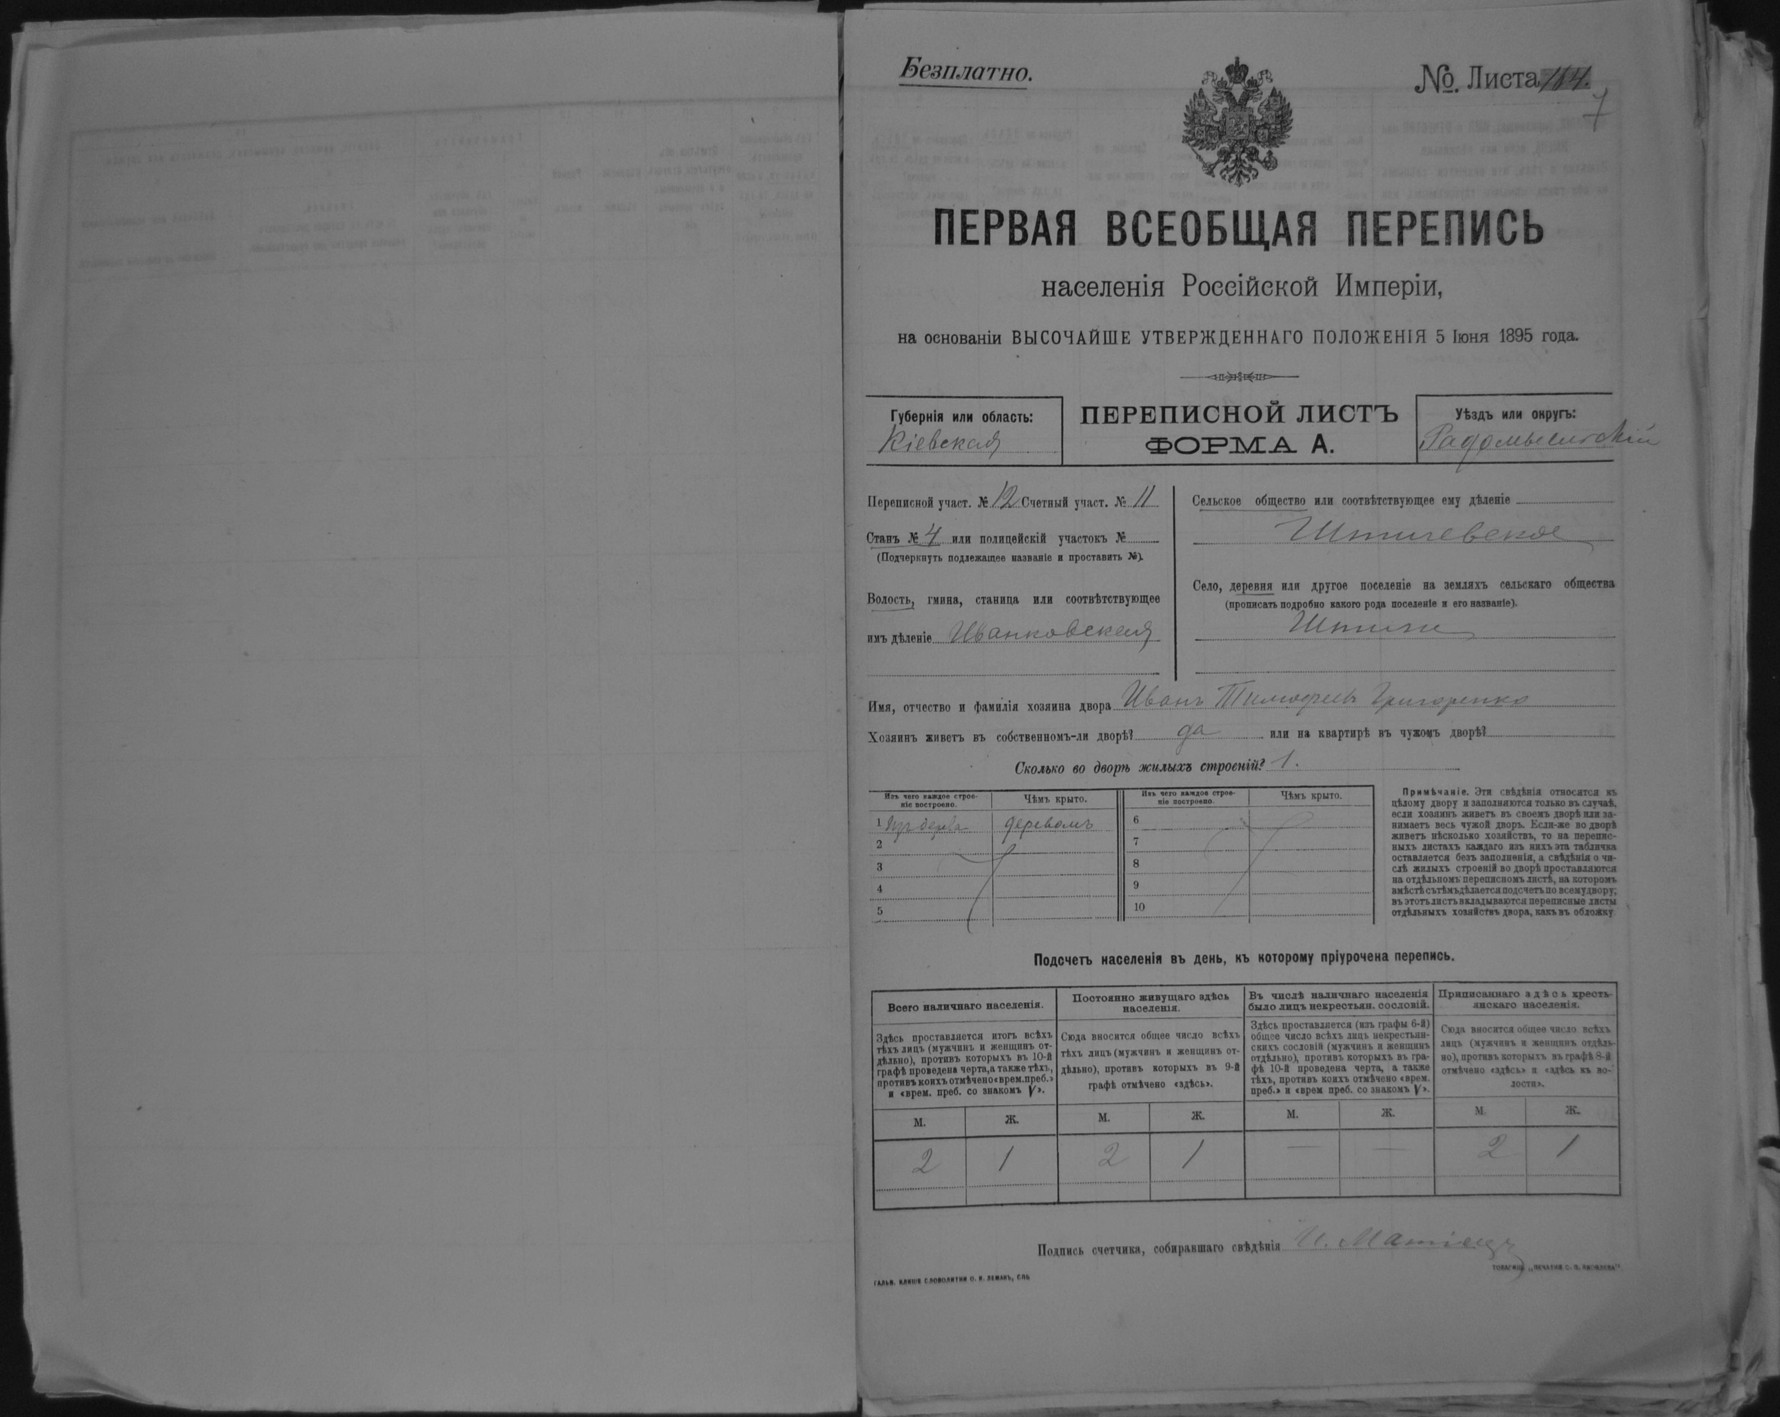 Безплатно.
№. Листа 184.
7
ПЕРВАЯ ВСЕОБЩАЯ ПЕРЕПИСЬ
населенія Россійской Имперіи,
на основаніи ВЫСОЧАЙШЕ УТВЕРЖДЕННАГО ПОЛОЖЕНІЯ 5 Іюня 1895 года.
Губернія или область:
Кіевская
ПЕРЕПИСНОЙ ЛИСТЪ
ФОРМА А.
Уѣздъ или округъ:
Радомысльскій
Переписной участ. № 12 Счетный участ. № 11
Станъ № 4 или полицейскій участокъ №
(Подчеркнуть подлежащее названіе и проставить №).
Волость, гмина, станица или соотвѣтствующее
имъ дѣленіе Иванковская
Сельское общество или соотвѣтствующее ему дѣленіе
Село, деревня или другое поселеніе на земляхъ сельскаго общества
(прописать подробно какого рода поселеніе и его названіе).
Имя, отчество и фамилія хозяина двора Иванъ Тимофеевъ Григоренко
Хозяинъ живетъ въ собственномъ-ли дворѣ? да или на квартирѣ въ чужомъ дворѣ?
Сколько во дворѣ жилыхъ строеній? 1.
Изъ чего каждое строе-
ніе построено.
Чѣмъ крыто.
1 деревомъ
2
3
4
5
Изъ чего каждое строе-
ніе построено.
Чѣмъ крыто.
6
7
8
9
10
Примѣчаніе. Эти свѣдѣнія относятся къ
цѣлому двору и заполняются только въ случаѣ,
если хозяинъ живетъ въ своемъ дворѣ или за-
нимаетъ весь чужой дворъ. Если-же во дворѣ
живетъ нѣсколько хозяйствъ, то на перепис-
ныхъ листахъ каждаго изъ нихъ эта табличка
оставляется безъ заполненія, а свѣдѣнія о чи-
слѣ жилыхъ строеній во дворѣ проставляются
на отдѣльномъ переписномъ листѣ, на которомъ
вмѣстѣ съ тѣмъ дѣлается подсчетъ по всему двору;
въ этотъ листъ вкладываются переписные листы
отдѣльныхъ хозяйствъ двора, какъ въ обложку.
Подсчетъ населенія въ день, къ которому пріурочена перепись.
Всего наличнаго населенія.
Здѣсь проставляется итогъ всѣхъ
тѣхъ лицъ (мужчинъ и женщинъ от-
дѣльно), противъ которыхъ въ 10-й
графѣ проведена черта, а также тѣхъ,
противъ коихъ отмѣчено «врем. преб.»
и «врем. преб. со знакомъ V».
М. Ж.
2 1
Постоянно живущаго здѣсь
населенія.
Сюда вносится общее число всѣхъ
тѣхъ лицъ (мужчинъ и женщинъ от-
дѣльно), противъ которыхъ въ 9-й
графѣ отмѣчено «здѣсь».
М. Ж.
2 1
Въ числѣ наличнаго населенія
было лицъ некрестьян. сословій.
Здѣсь проставляется (изъ графы 6-й)
общее число всѣхъ лицъ некрестьян-
скихъ сословій (мужчинъ и женщинъ
отдѣльно), противъ которыхъ въ гра-
фѣ 10-й проведена черта, а также
тѣхъ, противъ коихъ отмѣчено «врем.
преб.» и «врем. преб. со знакомъ V».
М. Ж.
— —
Приписаннаго здѣсь кресть-
янскаго населенія.
Сюда вносится общее число всѣхъ
лицъ (мужчинъ и женщинъ отдѣль-
но), противъ которыхъ въ графѣ 8-й
отмѣчено «здѣсь» и «здѣсь къ во-
лости».
М. Ж.
2 1
Подпись счетчика, собиравшаго свѣдѣнія